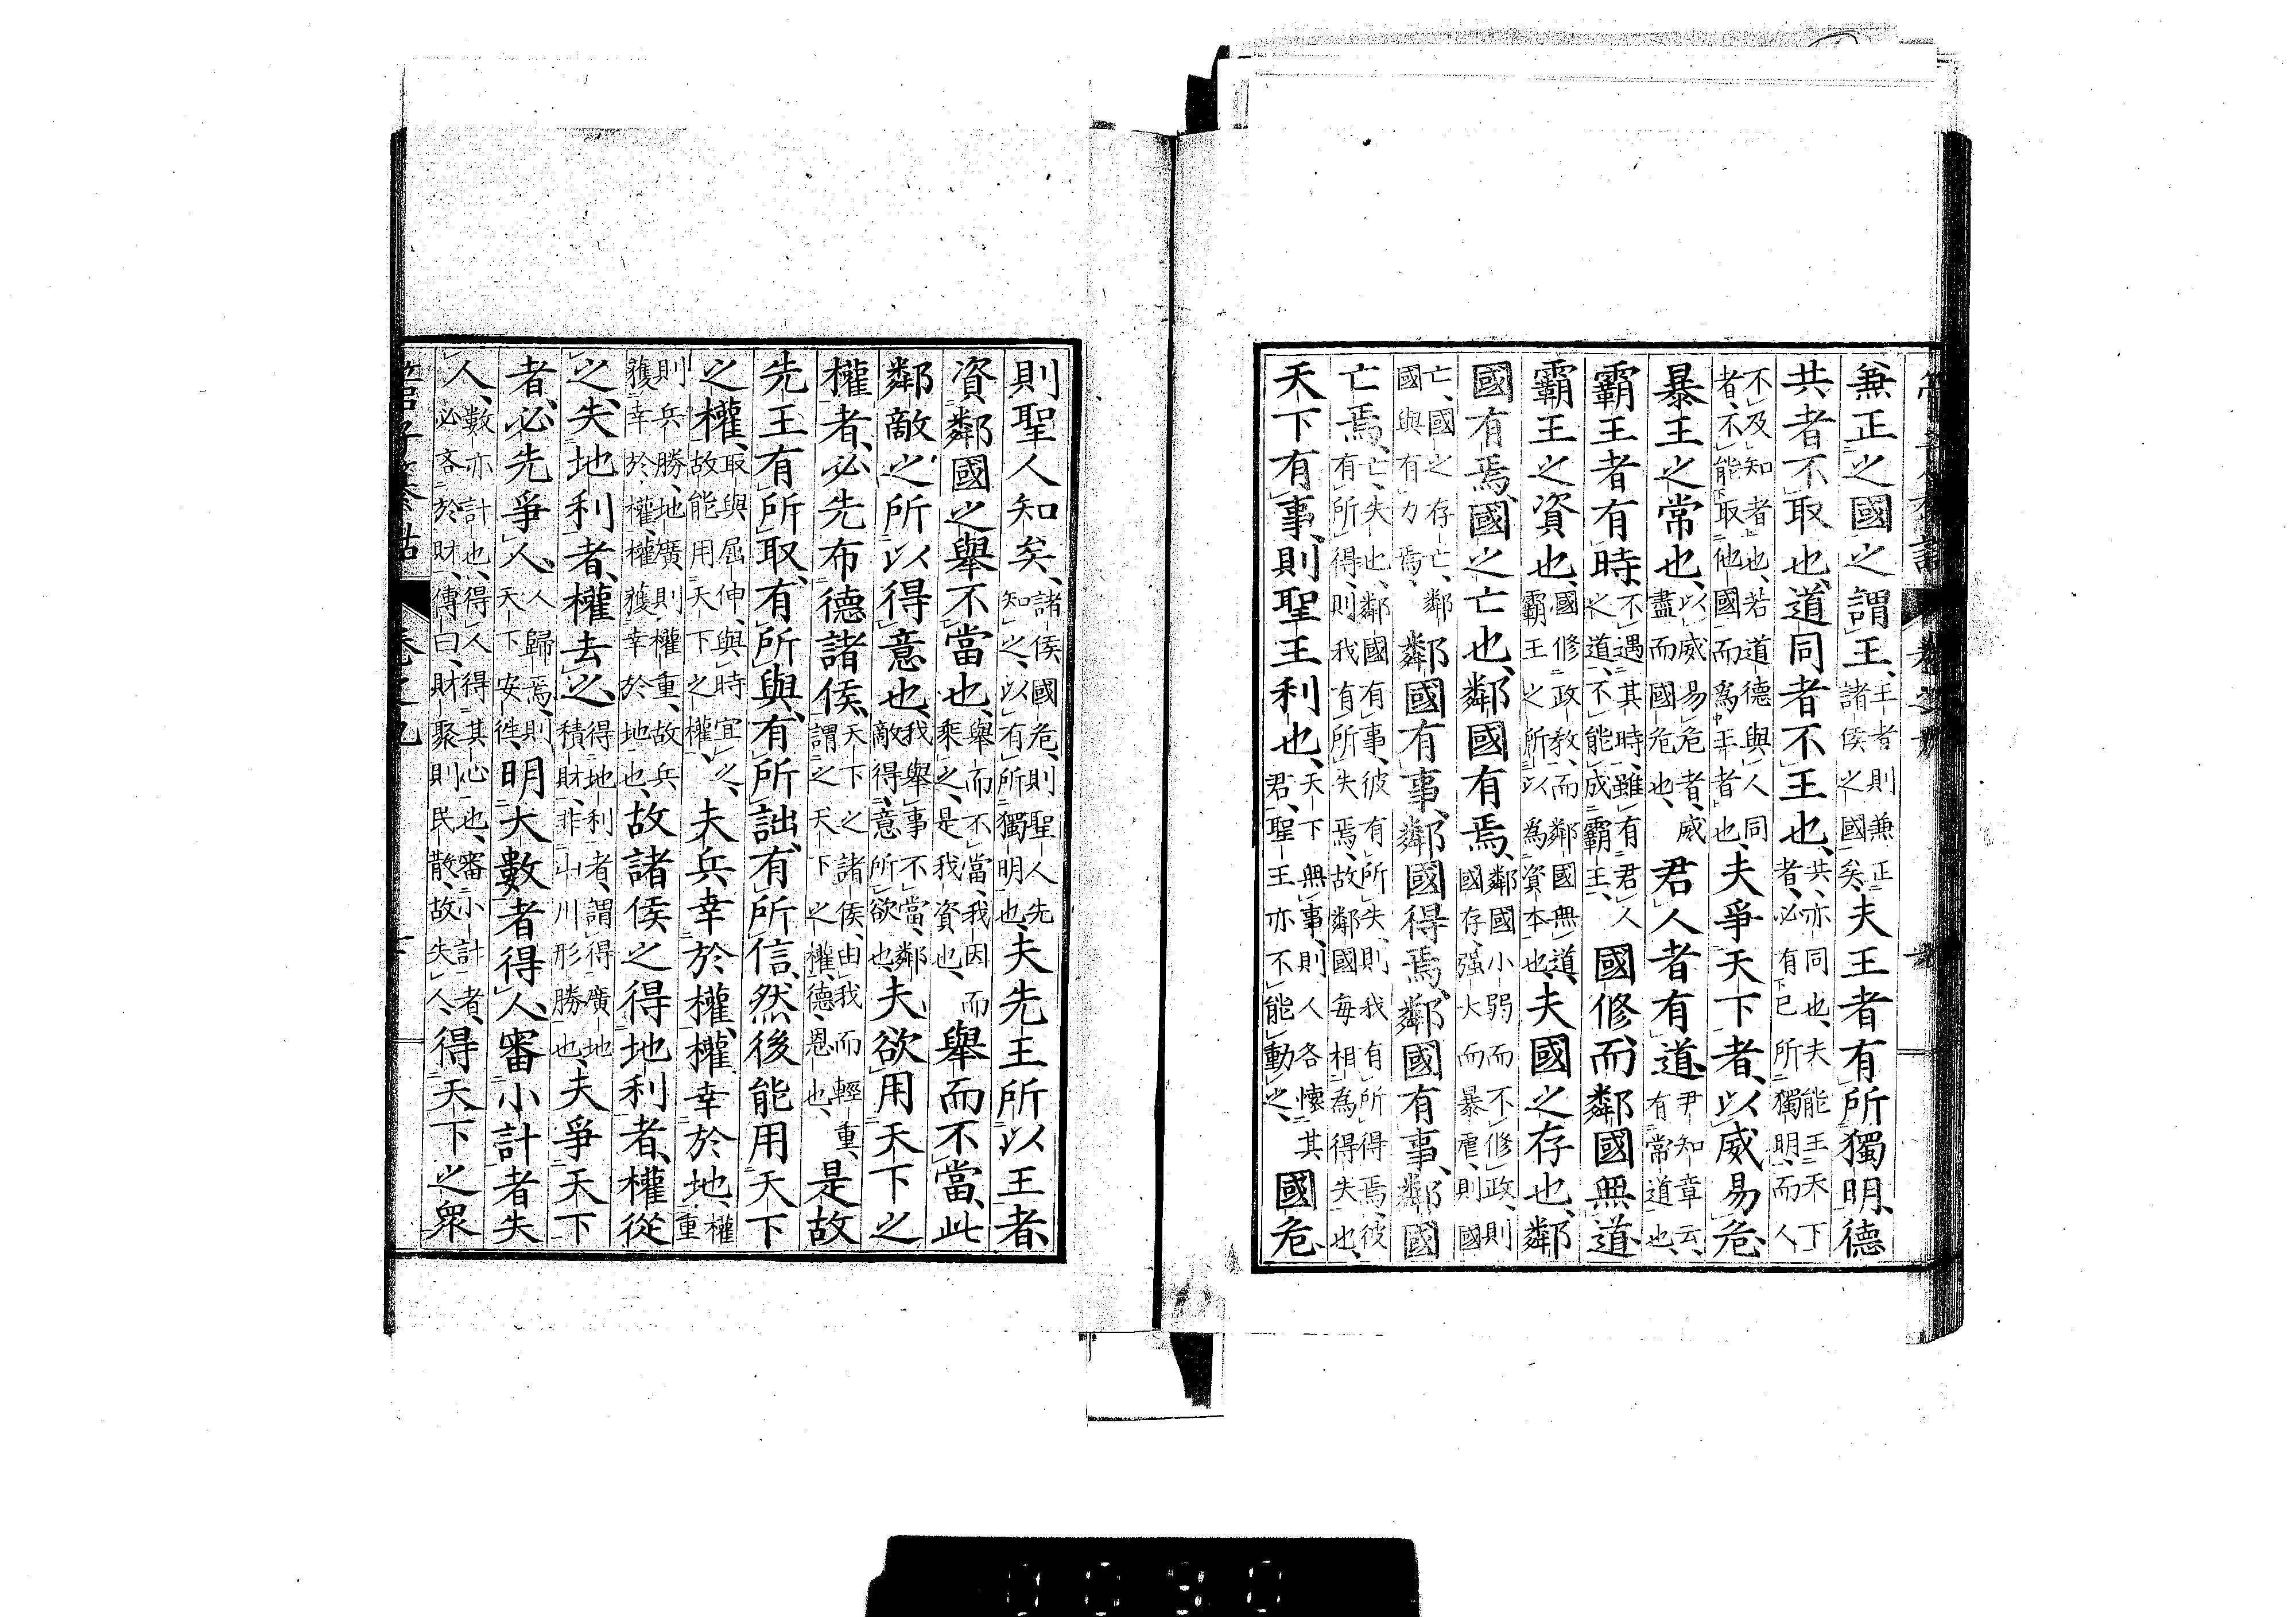 兼正之國之謂王、王者則兼正諸侯之國矣、夫王者有所獨明、德
共者不取也、道同者不王也、共、亦同也、夫能王天下者、必有已所獨明、而人
不及知者也、若道德與人同者、不能取他國而爲王者也、夫爭天下者、以威易危、
暴王之常也、以威易危者、威盡而國危也、君人者有道、尹知章云、有常道也、
霸王者有時、不遇其時、雖有君人之道、不能成霸王、國修、而鄰國無道、
霸王之資也、國修政教、而鄰國無道、霸王之所以為資本也、夫國之存也、鄰
國有焉、國之亡也、鄰國有焉、鄰國小弱而不修政、則國存、强大而暴虐、則國
亡、國之存亡、鄰國與有力焉、鄰國有事、鄰國得焉、鄰國有事、鄰國
亡焉、亡、失也、鄰國有事、彼有所失、則我有所得焉、彼有所得、則我有所失焉、故鄰國每相為得失也、
天下有事、則聖王利也、天下無事、則人各懷其君、聖王亦不能動之、國危、
則聖人知矣、諸侯國危、則聖人先知之、以有所獨明也、夫先王所以王者、
資鄰國之舉不當也、舉而不當、我因而乘之、是我資也、舉而不當、此
鄰敵之所以得意也、我舉事不當、鄰敵得意所欲也、夫欲用天下之
權者、必先布德諸侯、天下之諸侯、由我而輕重、謂之天下之權、德、恩也、是故
先王有所取、有所與、有所詘、有所信、然後能用天下
之權、取與屈伸、與時宜之、故能用天下之權、夫兵幸於權、權幸於地、權重
則兵勝、地廣則權重、故兵獲幸於權、權獲幸於地也、故諸侯之得地利者、權從
之、失地利者、權去之、得地利者、謂得廣地積財、非山川形勝也、夫爭天下
者、必先爭人、人歸焉、則天下安徃、明大數者得人、審小計者失
人、數亦計也、得人得其心也、審小計者、必吝於財、傳曰、財聚則民散、故失人、得天下之眾